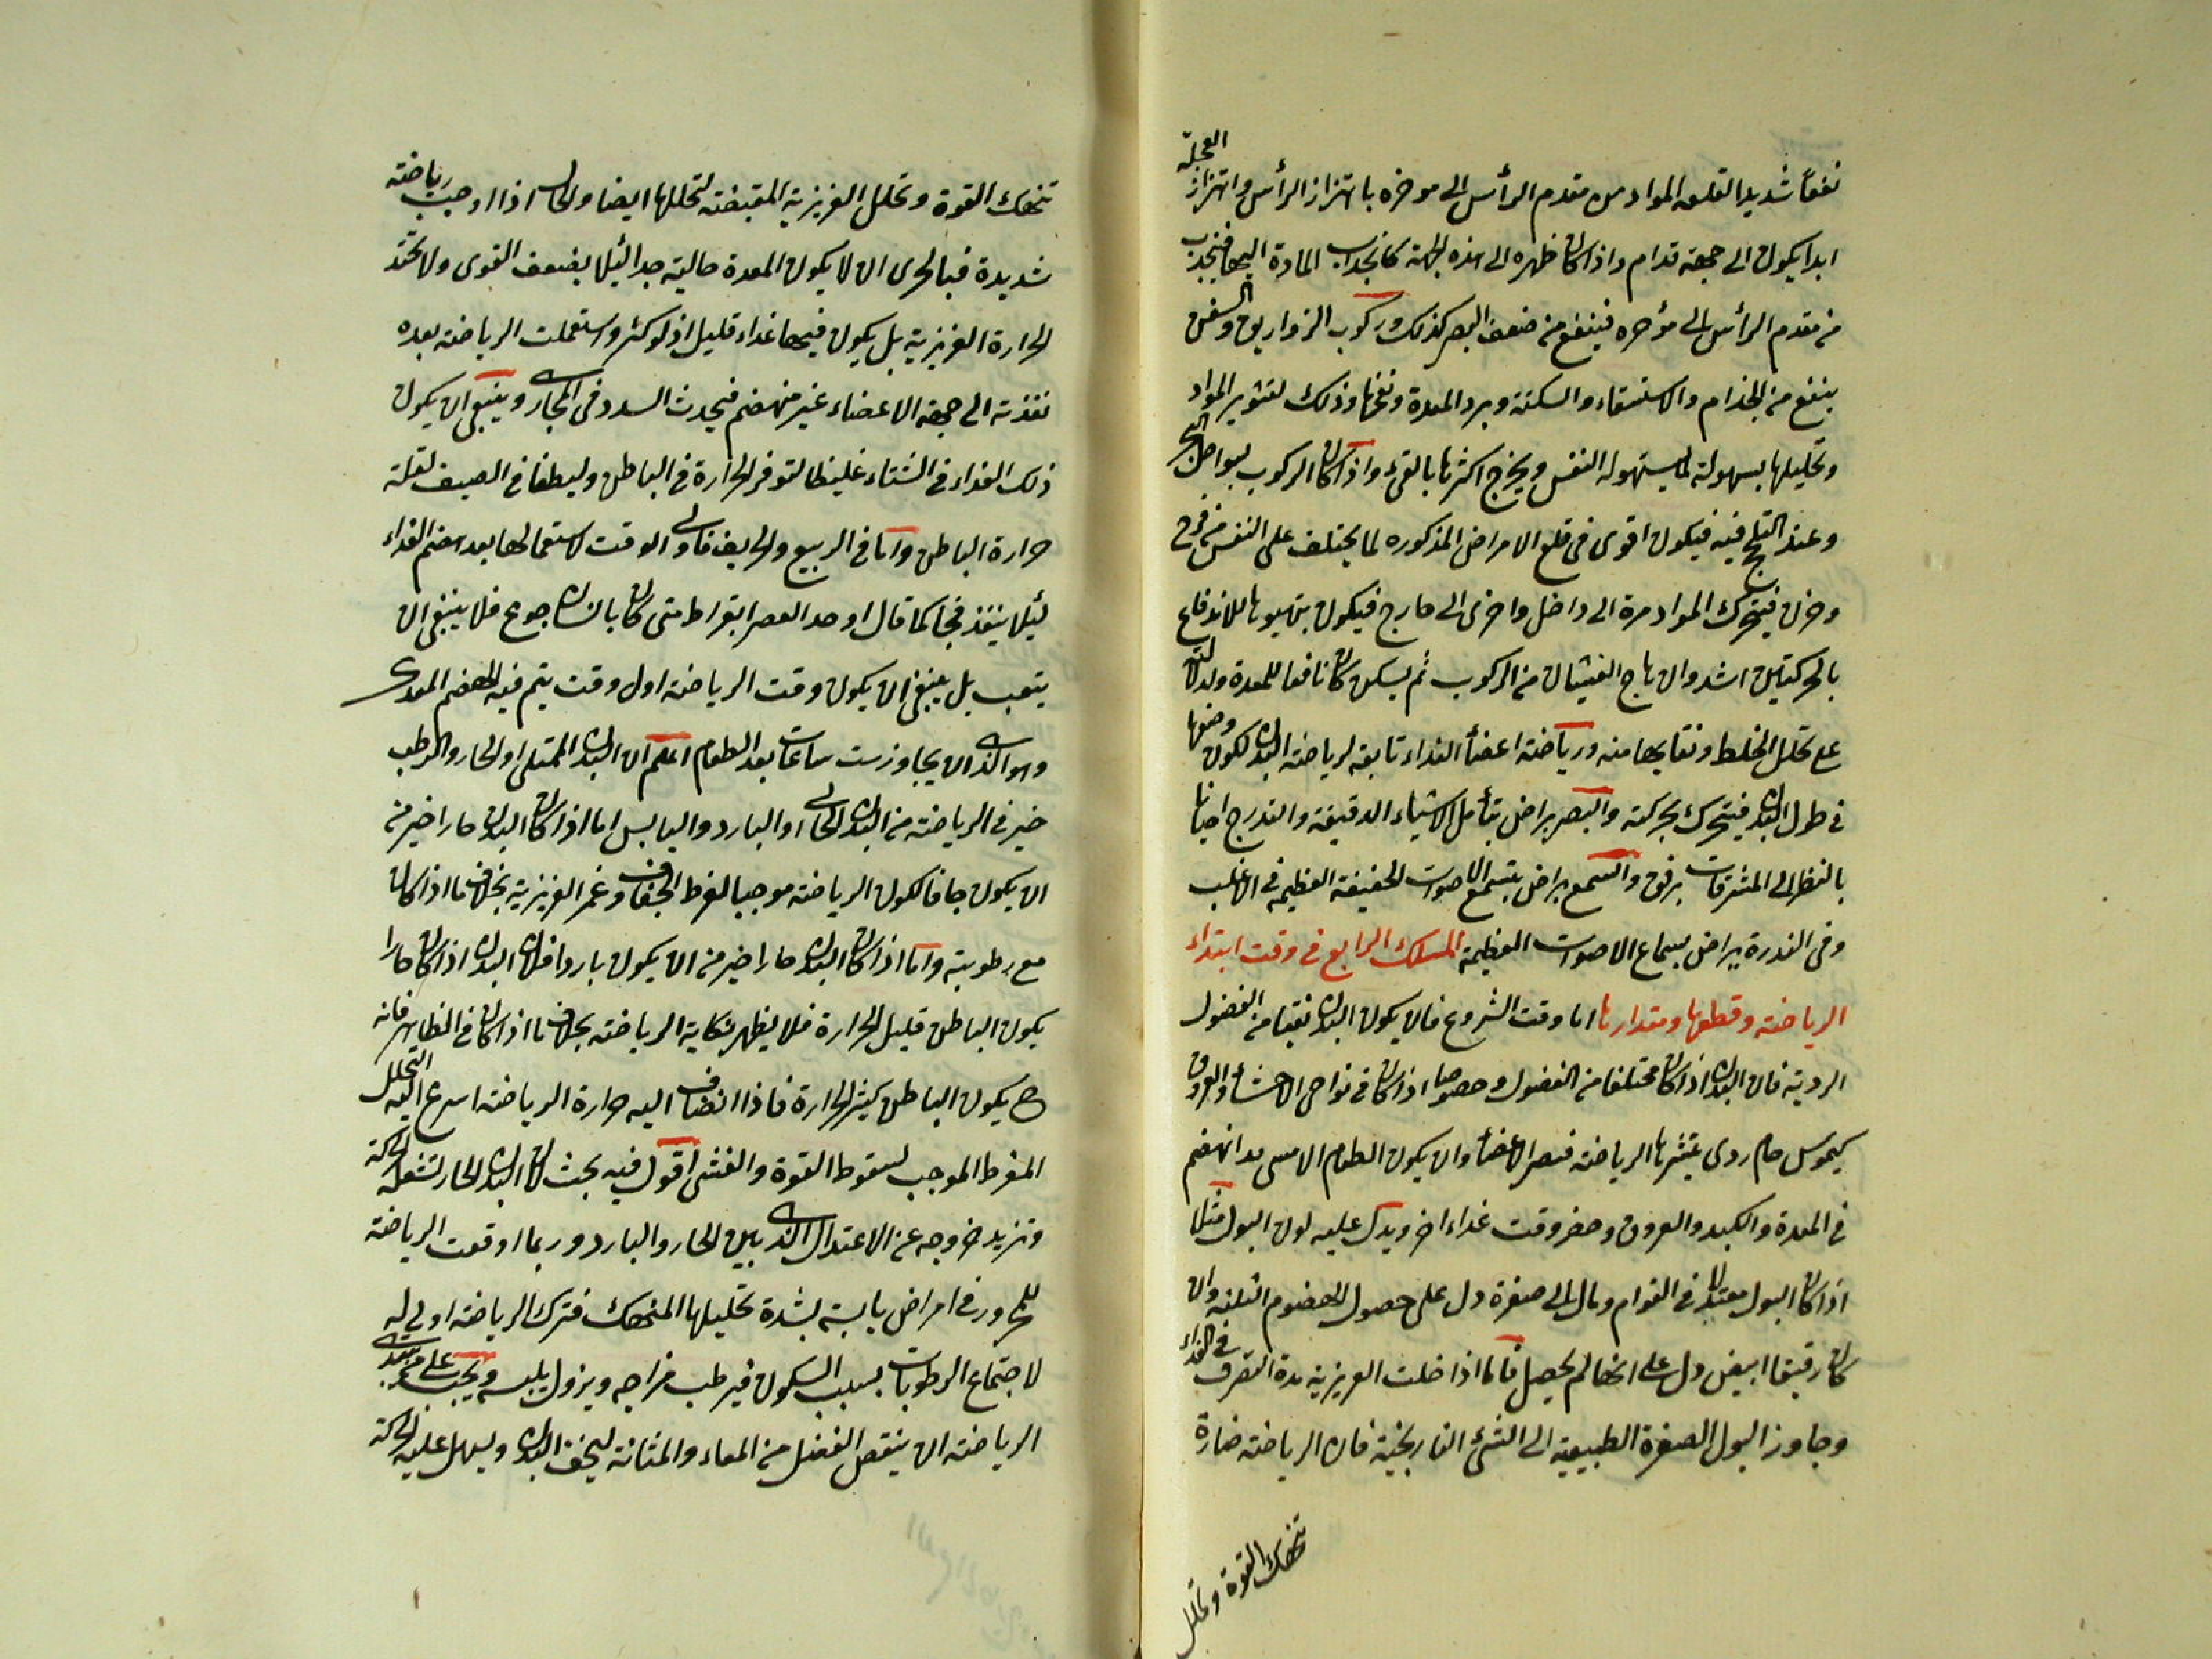 نفعاً شديدا لقلعه المواد من مقدم الرأس الى موخره باهتزاز الرأس واهتزاز العجلة
ابدا يكون الى جهة قدام واذا كان ظهره الى هذه الجهة كان جذب المادة اليها فينجذب
من مقدم الرأس الى مؤخره فينفع من ضعف البصر كذلك وركوب الزواريق والسفن
ينفع من الجذام والاستسقاء والسكتة وبرد المعدة ونفخها وذلك لتثوير المواد
وتحليلها بسهولة لما يستهوله النفس ويخرج اكثرها بالقئ واذا كان الركوب بسواحل البحر
وعند التلجج فيه فيكون اقوى فى قلع الامراض المذكوره لما يختلف على النفس من فرح
وحزن فيتحرك المواد مرة الى داخل واخرى الى خارج فيكون تهيوها للاندفاع
بالحركتين اشد وان هاج الغيثان من الركوب ثم يسكن كان نافعا للمعدة ولدلالته
على تحلل الخلط ونقائها منه ورياضة اعضاء الغداء تابعة لرياضة البدن لكون وضعها
فى طول البدن فيتحرك بحركته والبصر يراض بتأمل الاشياء الدقيقة والتدرج احيانا
بالنظر الى المشرقات برفق والسمع يراض بتسمع الاصوات الخفيفة العظيمة فى الاغلب
وفى الندرة يراض بسماع الاصوات العظيمة المسلك الرابع فى وقت ابتداء
الرياضة وقطعها ومقدارها اما وقت الشروع فان يكون البدن نقيا من الفضول
الردية فان البدن اذا كان مختلفا من الفضول وخصوصا اذا كان فى نواحى الاحشاء والعروق
كيموس خام ردى ينشرها الرياضة فيضر الاعضاء وان يكون الطعام الامسى قد انهضم
فى المعدة والكبد والعروق وحضر وقت غداء اخر ويدل عليه لون البول مثلا
اذا كان البول معتدلا فى القوام ومال الى صفرة دل على حصول الهضوم الثلثة وان
كان رقيقا ابيض دل على انها لم يحصل فاما اذا خلت الغريزية مدة التصرف فى الغداء
وجاوز البول الصفرة الطبيعية الى الشئ النارنجية فان الرياضة ضارة
تنهك القوة وتحلل
تنهك القوة وتحلل الغريزية المقبضة لتحللها ايضا ولكن اذا اوجبت رياضة
شديدة فبالحرى ان لا يكون المعدة خالية جدا لئيلا يضعف القوى ولا تحتد
الحرارة الغريزية بل يكون فيها غداء قليل اذ لو كثر واستعملت الرياضة بعده
نفذته الى جهة الاعضاء غير منهضم فيحدث السدد فى المجارى وينبغى ان يكون
ذلك الغداء فى الشتاء غليظا لتوفر الحرارة فى الباطن ولطيفا فى الصيف لقلة
حرارة الباطن واما فى الربيع والخريف فاولى الوقت لاستعمالها بعد هضم الغداء
لئيلا ينفذ فجا كما قال اوحد العصر ابقراط متى كان بانسان جوع فلا ينبغى ان
يتعب بل ينبغى ان يكون وقت الرياضة اول وقت يتم فيه الهضم المعدى
وهو الذى ان يجاوز ست ساعات بعد الطعام اعلم ان البدن الممتلى او الحار والرطب
خير فى الرياضة من البدن الخالى او البارد واليابس اما اذا كان البدن حارا خير من
ان يكون جافا لكون الرياضة موجبا لفرط الجفاف وغمر الغريزية بخلاف ما اذا كان
مع رطوبته واما اذا كان البدن حارا خير من ان يكون باردا فلان البدن اذا كان حارا
يكون الباطن قليل الحرارة فلا يظهر نكاية الرياضة بخلاف ما اذا كان فى الظاهر فانه
ح يكون الباطن كثير الحرارة فاذا انضاف اليه حرارة الرياضة اسرع اليه التحلل
المفرط الموجب لسقوط القوة والغشى اقول فيه بحث لان البدن الحار لتشعله الحركة
وتزيد خروجه عن الاعتدال الذى بين الحار والبارد وربما اوقعت الرياضة
للمحرور فى امراض يابسة لشدة تحليلها المنهك فترك الرياضة اولى له
لاجتماع الرطوبات بسبب السكون فيرطب مزاجه ويزول يبسه ويجب على مبتدى
الرياضة ان ينقص الفضل من المعاء والمثانة ليخف البدن ويسهل عليه الحركة